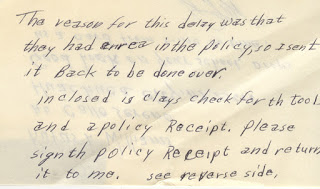 The reason for this delay was that
they had anrea in the policy, so I sent
it Back to be done over.
inclosed is clays check for th tool
and a policy Receipt. please
sign th policy Receipt and return
it to me. see reverse side,